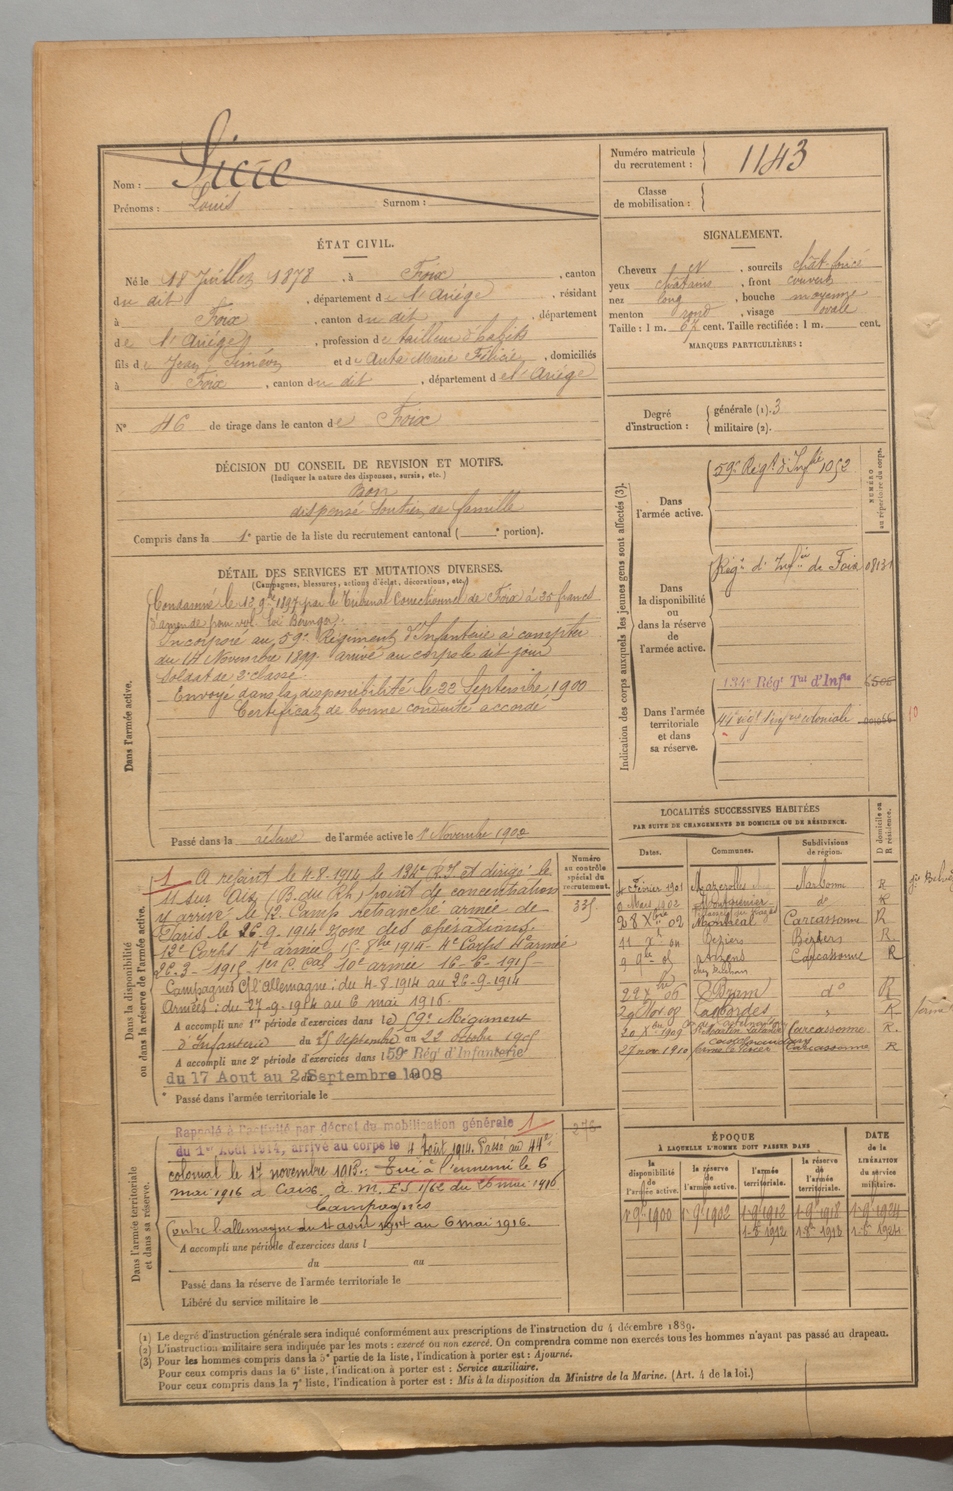 Nom : Sicre
Prénoms : Louis Surnom :
Numéro matricule du recrutement : 1143
Classe de mobilisation :
ÉTAT CIVIL.
Né le 18 Juillet 1878, à Foix, canton
du dit, département de l'Ariège, résidant
à Foix, canton du dit, département
de l'Ariège, profession de tailleur d'habits
fils de Jean Siméon et de Marie Félicie, domiciliés
à Foix, canton du dit, département de l'Ariège
N° 46 de tirage dans le canton de Foix
SIGNALEMENT.
Cheveux N, sourcils chât. foncé
yeux châtains, front couvert
nez long, bouche moyenne
menton rond, visage ovale
Taille : 1 m. 67 cent. Taille rectifiée : 1 m. cent.
MARQUES PARTICULIÈRES :
Degré d'instruction : générale (1). 3
militaire (2).
DÉCISION DU CONSEIL DE REVISION ET MOTIFS.
(Indiquer la nature des dispenses, sursis, etc.)
Bon
dispensé Soutien de famille
Compris dans la 1e partie de la liste du recrutement cantonal ( e portion).
DÉTAIL DES SERVICES ET MUTATIONS DIVERSES.
(Campagnes, blessures, actions d'éclat, décorations, etc.)
Dans l'armée active.
Condamné le 13 9bre 1897 par le Tribunal Correctionnel de Foix à 25 francs
d'amende pour vol. Loi Bérenger.
Incorporé au 59e Régiment d'Infanterie à compter
du 14 Novembre 1899. arrivé au corps le dit jour
Soldat de 2e classe.
Envoyé dans la disponibilité le 22 Septembre 1900
Certificat de bonne conduite accordé
Passé dans la réserve de l'armée active le 1er Novembre 1902
Indication des corps auxquels les jeunes gens sont affectés (3).
NUMÉRO au répertoire du corps.
Dans l'armée active.
59e Régt d'Infrie 1052
Dans la disponibilité ou dans la réserve de l'armée active.
Régt d'Infrie de Foix 08131
Dans l'armée territoriale et dans sa réserve.
134e Régt Tal d'Infie
44e régt d'infrie coloniale
10
LOCALITÉS SUCCESSIVES HABITÉES
PAR SUITE DE CHANGEMENTS DE DOMICILE OU DE RÉSIDENCE.
Dates. Communes. Subdivisions de région. D domicile ou R résidence.
Février 1901 Mazerolles Narbonne R
02 do R
28 Xbre 02 Montréal Carcassonne R
11 Béziers Béziers R.
9 9bre 05 Arzens Carcassonne R
22 06 Bram do R
29 Nov 08 R
20 Xbre 1909 Carcassonne R.
27 nov 1910 Carcassonne R
Numéro au contrôle spécial du recrutement.
335
Dans la disponibilité ou dans la réserve de l'armée active.
1 A rejoint le 4-8-1914 le 134e R.I et dirigé le
11 sur Aix (B. du Rh.) point de concentration
y arrivé le 12. Camp retranché armée de
Paris le 26-9-1914 zone des opérations
12e Corps 4e armée 15-8bre 1914 - 4e Corps 4e armée
26-3-1915 1er C. Cal 10e armée 16-6-1915
Campagnes C/ l'Allemagne : du 4-8-1914 au 26-9-1914
Armées : du 27-9-1914 au 6 mai 1916.
A accompli une 1re période d'exercices dans le 59e Régiment
d'Infanterie du 25 Septembre au 22 octobre 1905
A accompli une 2e période d'exercices dans l 59e Rég' d'Infanterie
du 17 Aout au 2 Septembre 1908
Passé dans l'armée territoriale le
Dans l'armée territoriale et dans sa réserve.
Rappelé à l'activité par décret du mobilisation générale 1
du 1er Aout 1914, arrivé au corps le 4 Août 1914. Passé au 44e
colonial le 17 novembre 1915. Tué à l'ennemi le 6
mai 1916 à Caix. A. M. ES 1/62 du 26 mai 1916
Campagnes
Contre l'allemagne du 4 aout 1914 au 6 mai 1916.
276
A accompli une période d'exercices dans l
du au
Passé dans la réserve de l'armée territoriale le
Libéré du service militaire le
ÉPOQUE
À LAQUELLE L'HOMME DOIT PASSER DANS
DATE de la LIBÉRATION du service militaire.
la disponibilité de l'armée active. la réserve de l'armée active. l'armée territoriale. la réserve de l'armée territoriale.
1er 9bre 1900 1er 9bre 1902 1-9bre 1912 1-9bre 1918 1-9bre 1924
1-8bre 1912 1-8bre 1918 1-8bre 1924
(1) Le degré d'instruction générale sera indiqué conformément aux prescriptions de l'instruction du 4 décembre 1889.
(2) L'instruction militaire sera indiquée par les mots : exercé ou non exercé. On comprendra comme non exercés tous les hommes n'ayant pas passé au drapeau.
(3) Pour les hommes compris dans la 5e partie de la liste, l'indication à porter est : Ajourné.
Pour ceux compris dans la 6e liste, l'indication à porter est : Service auxiliaire.
Pour ceux compris dans la 7e liste, l'indication à porter est : Mis à la disposition du Ministre de la Marine. (Art. 4 de la loi.)